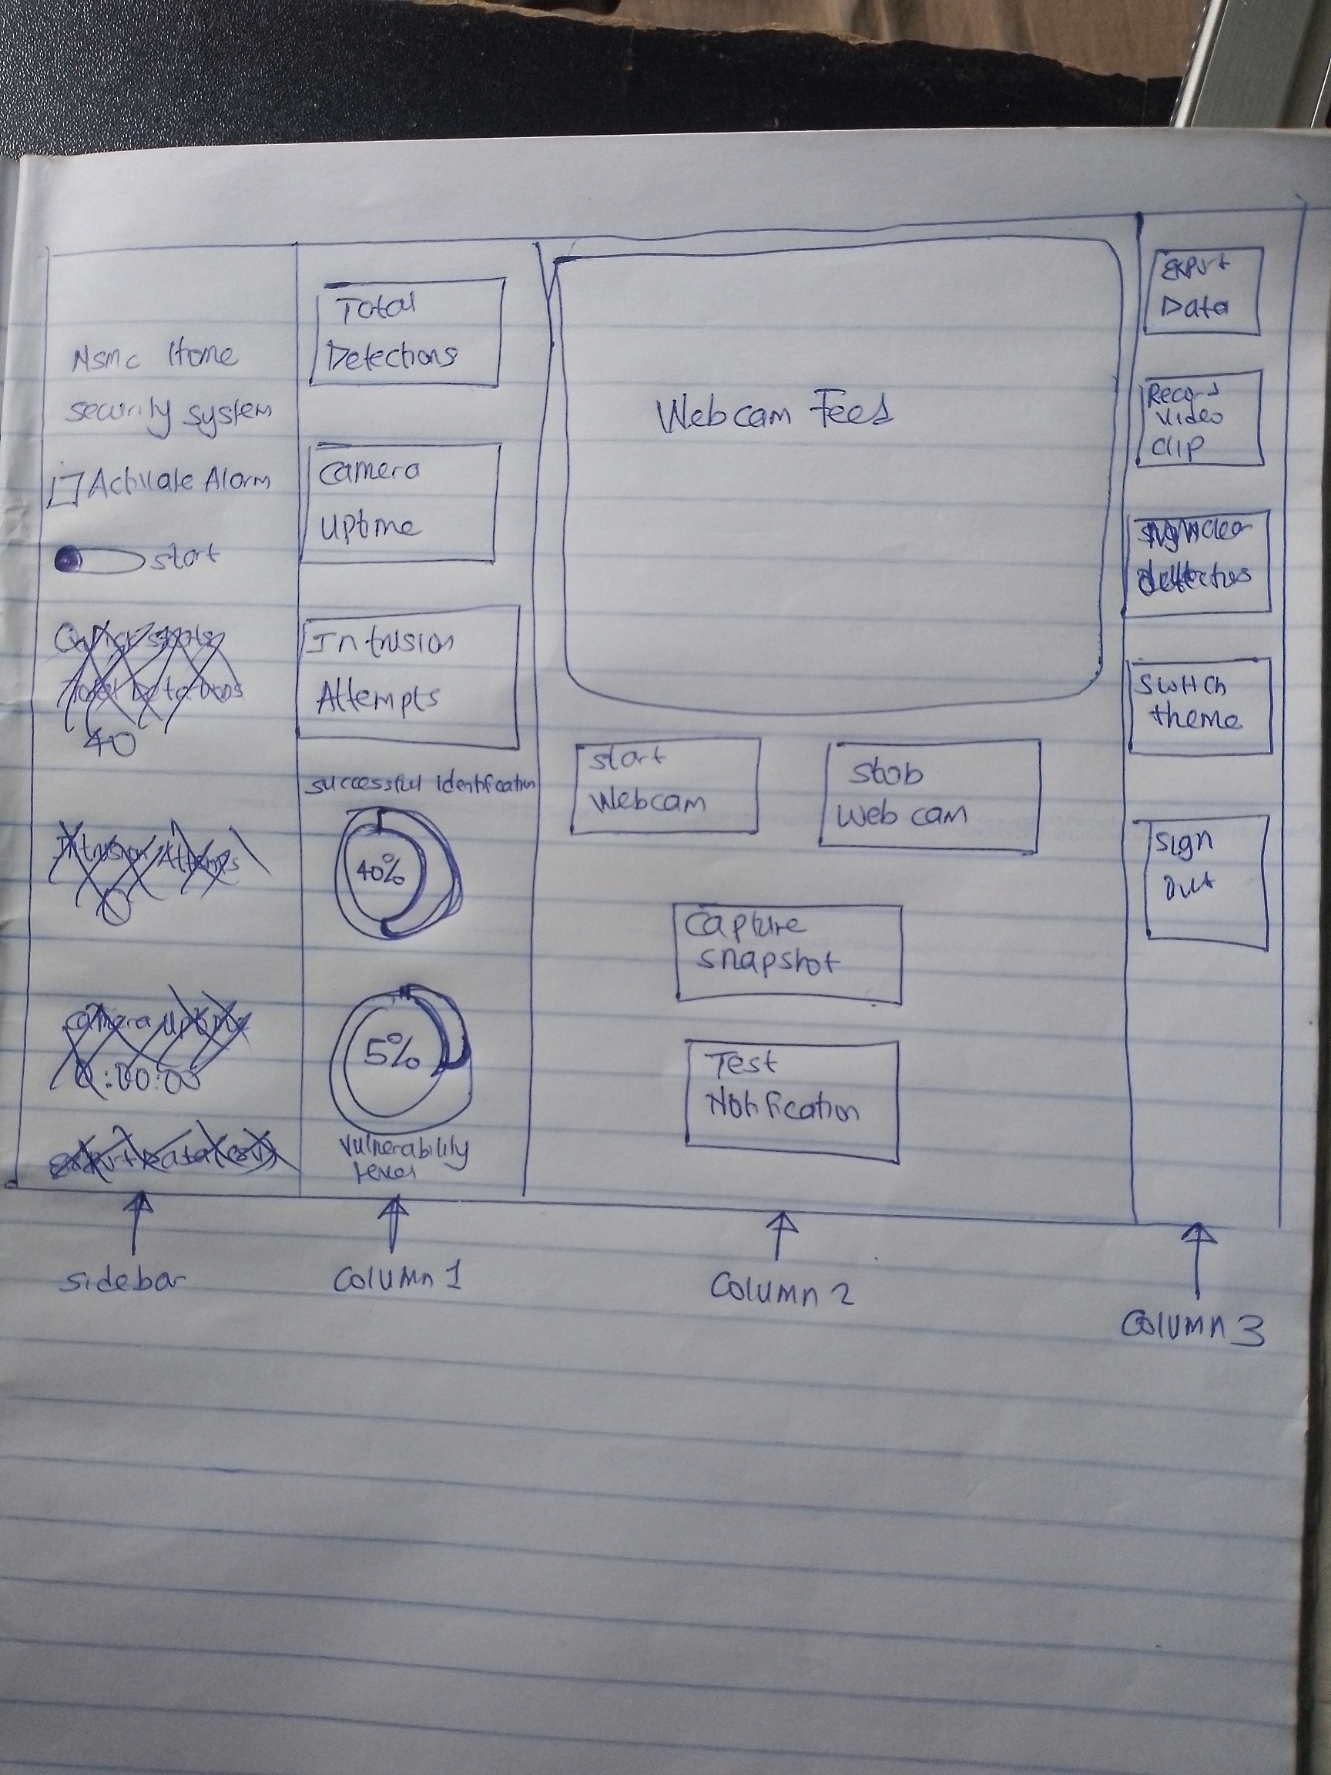 Nsmc Home
security system
Activate Alarm
start
40
0
0:00:00
Total
Detections
Camera
uptime
Intrusion
Attempts
successful identification
40%
5%
Vulnerability
level
Webcam Feed
start
Webcam
stob
Web cam
Capture
snapshot
Test
Notification
Export
Data
Record
video
clip
clear
detections
Switch
theme
Sign
out
sidebar
COLUMN 1
COLUMN 2
COLUMN 3